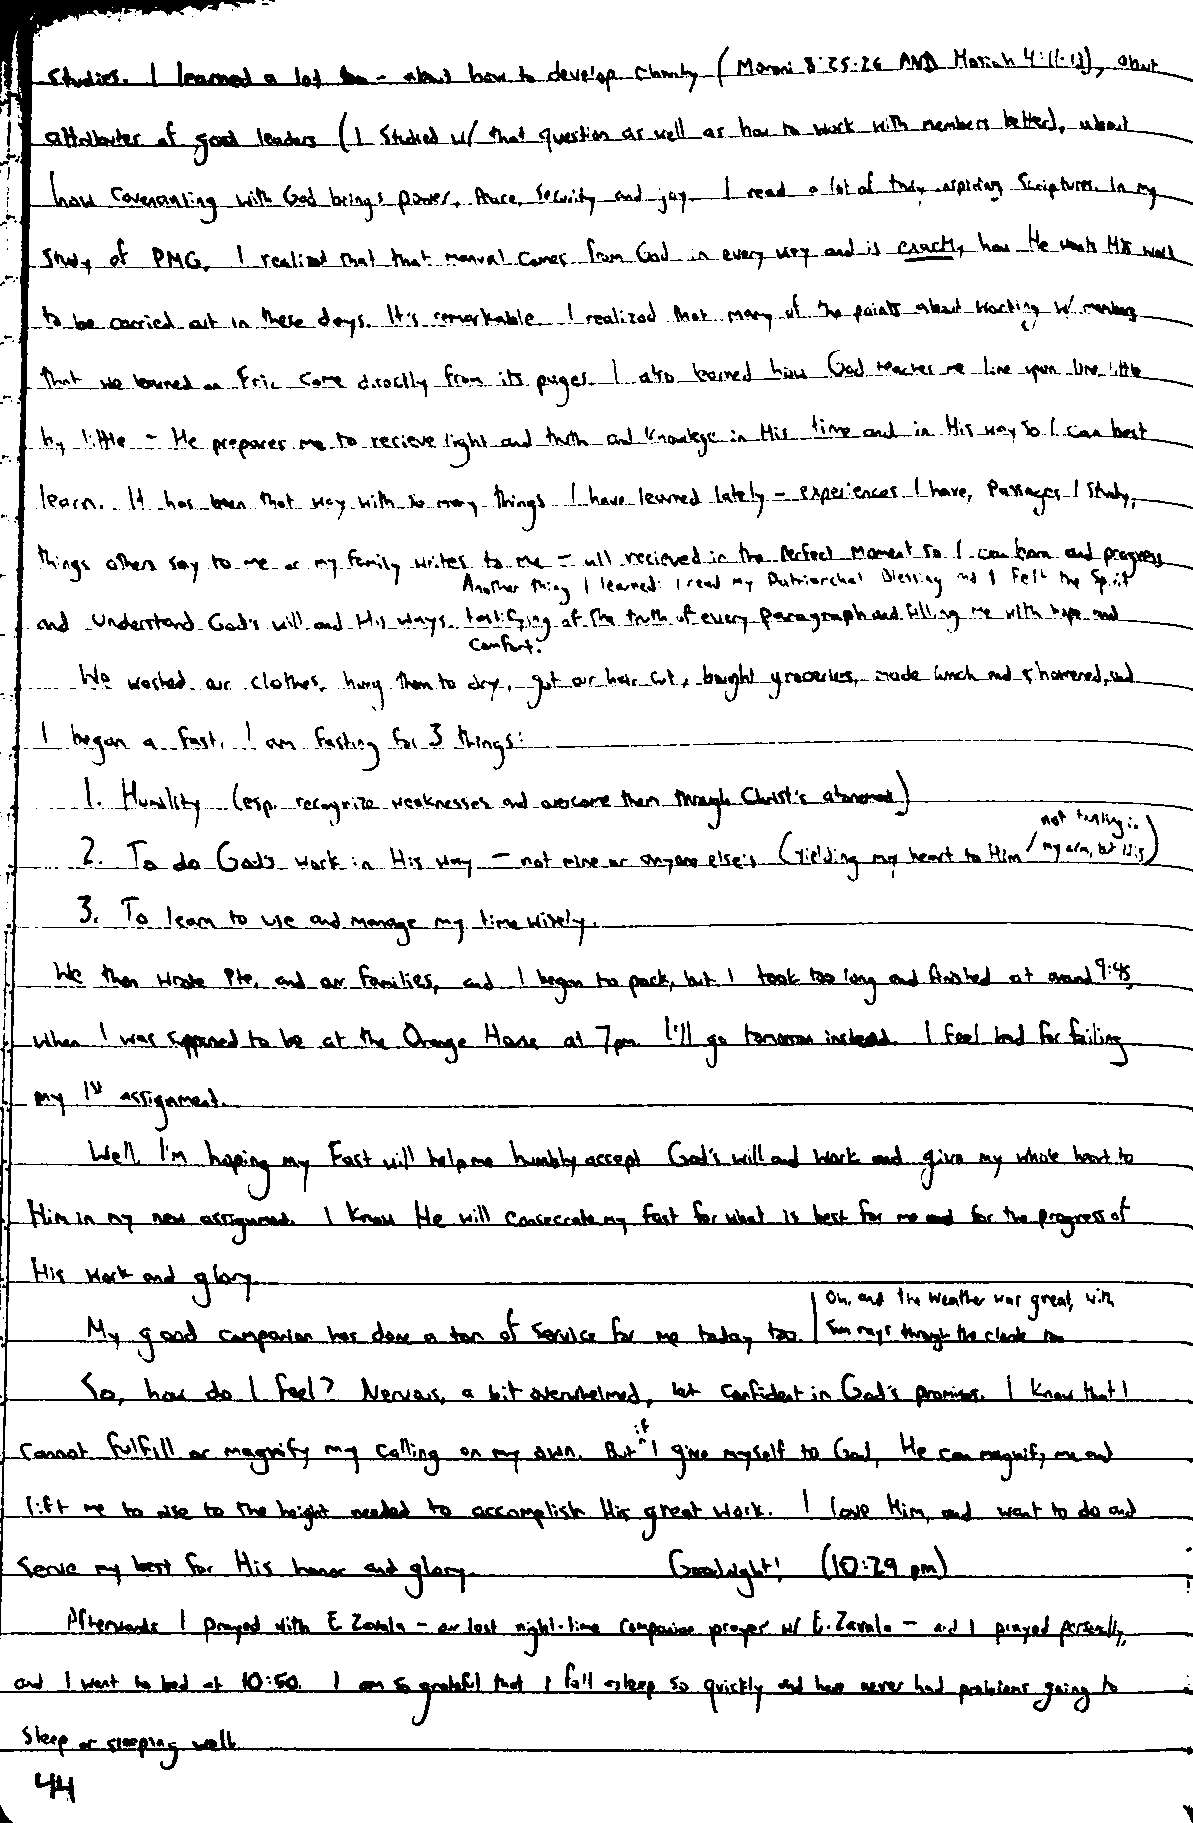 studies. I learned a lot - about how to develop charity (Moroni 8:25-26 AND Mosiah 4:11-12), about
attributes of good leaders (I studied w/ that question as well as how to work with members better), about
how covenanting with God brings power, peace, security and joy. I read a lot of truly inspiring scriptures. In my
study of PMG, I realized that that manual comes from God in every way and is exactly how He wants His work
to be carried out in these days. It's remarkable. I realized that many of the points about working w/ members
that we learned on Fric come directly from its pages. I also learned how God teaches me line upon line little
by little - He prepares me to recieve light and truth and knowlege in His time and in His way so I can best
learn. It has been that way with so many things I have learned lately - experiences I have, passages I study,
things others say to me or my family writes to me - all recieved in the perfect moment so I can learn and progress
and understand God's will and His ways. Another thing I learned: I read my Patriarchal Blessing and I felt the Spirit
testifying of the truth of every paragraph and filling me with hope and
comfort.
We washed our clothes, hung them to dry, got our hair cut, bought groceries, made lunch and showered, and
I began a fast. I am fasting for 3 things:
1. Humility (esp. recognize weaknesses and overcome them through Christ's atonement)
2. To do God's work in His way - not mine or anyone else's (yielding my heart to Him / not trusting in my arm, but His)
3. To learn to use and manage my time wisely.
We then wrote Pte. and our families, and I began to pack, but I took too long and finished at around 9:45
when I was supposed to be at the Orange House at 7pm. I'll go tomorrow instead. I feel bad for failing
my 1st assignment.
Well I'm hoping my fast will help me humbly accept God's will and work and give my whole heart to
Him in my new assignment. I know He will consecrate my fast for what is best for me and for the progress of
His work and glory.
My good companion has done a ton of service for me today too. | Oh, and the weather was great, with
sun rays through the clouds
So, how do I feel? Nervous, a bit overwhelmed, but confident in God's promises. I know that I
cannot fulfill or magnify my calling on my own. But if I give myself to God, He can magnify me and
lift me to rise to the height needed to accomplish His great work. I love Him, and want to do and
serve my best for His honor and glory. Goodnight! (10:29 pm)
Afterwards I prayed with E. Zavala - our last night-time companion prayer w/ E. Zavala - and I prayed personally,
and I went to bed at 10:50. I am so grateful that I fall asleep so quickly and have never had problems going to
sleep or sleeping well.
44